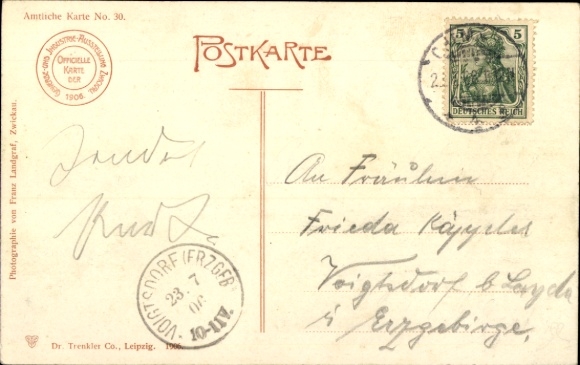 Amtliche Karte No. 30.
GEWERBE- UND INDUSTRIE-AUSSTELLUNG ZWICKAU
OFFICIELLE
KARTE
DER
1906.
POSTKARTE
5 5
DEUTSCHES REICH
Photographie von Franz Landgraf, Zwickau.
sendet
Kurt
An Fräulein
Frieda
Voigtsdorf b Sayda
i Erzgebirge.
VOIGTSDORF (ERZGEB)
23. 7
06
10-11V.
Dr. Trenkler Co., Leipzig. 1906.